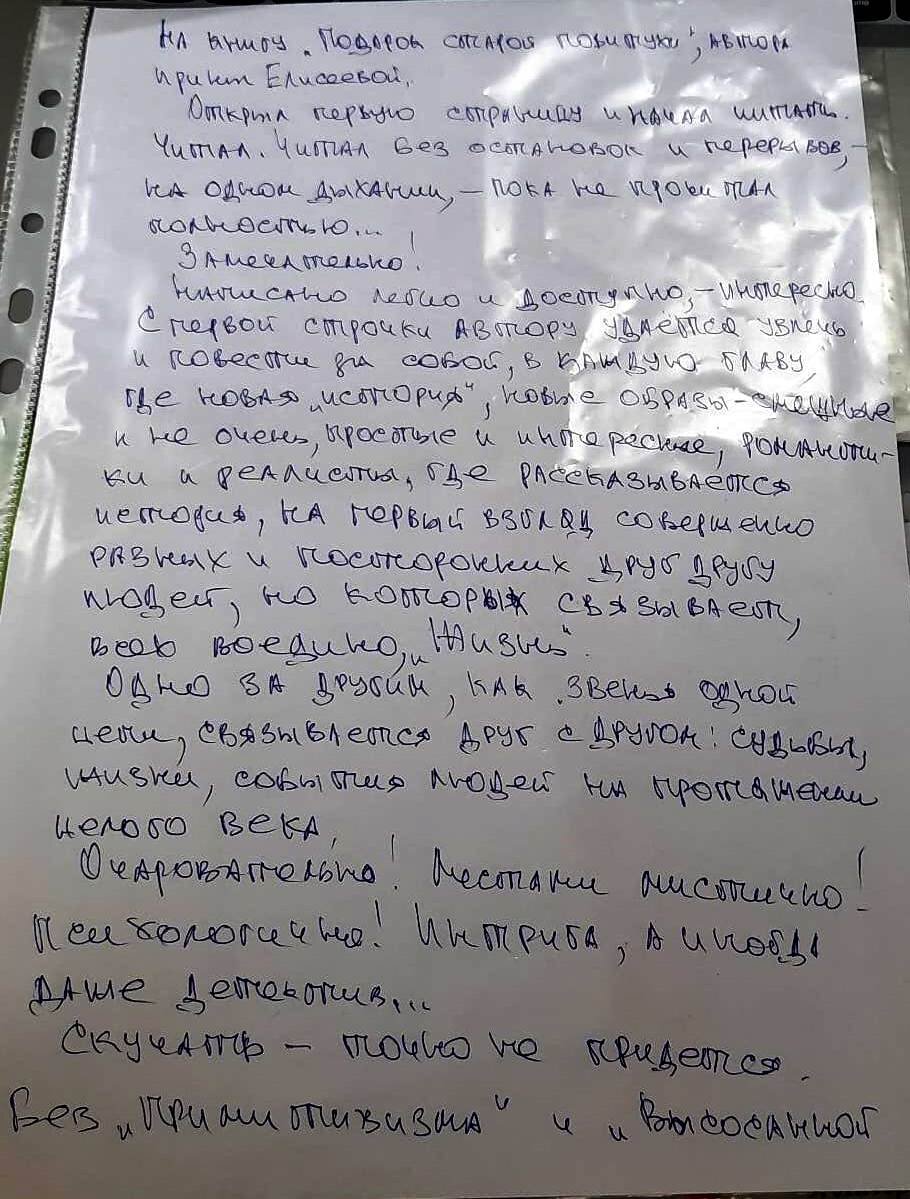 На книгу „Подарок старой повитухи", автора
Ирины Елисеевой.
Открыл первую страницу и начал читать.
Читал. Читал без остановок и перерывов, –
на одном дыхании, – пока не прочитал
полностью...
Замечательно!
Написано легко и доступно, – интересно.
С первой строчки автору удаётся увлечь
и повести за собой, в каждую главу,
где новая „история", новые образы – смешные
и не очень, простые и интересные, романти-
ки и реалисты, где рассказывается
история, на первый взгляд совершенно
разных и посторонних друг другу
людей, но которых связывает,
всех воедино, „Жизнь".
Одно за другим, как звенья одной
цепи, связывается друг с другом: судьбы,
жизни, события людей на протяжении
целого века.
Очаровательно! Местами мистично!
Психологично! Интрига, а иногда
даже детектив...
Скучать – точно не придется.
Без „примитивизма" и „высосанной